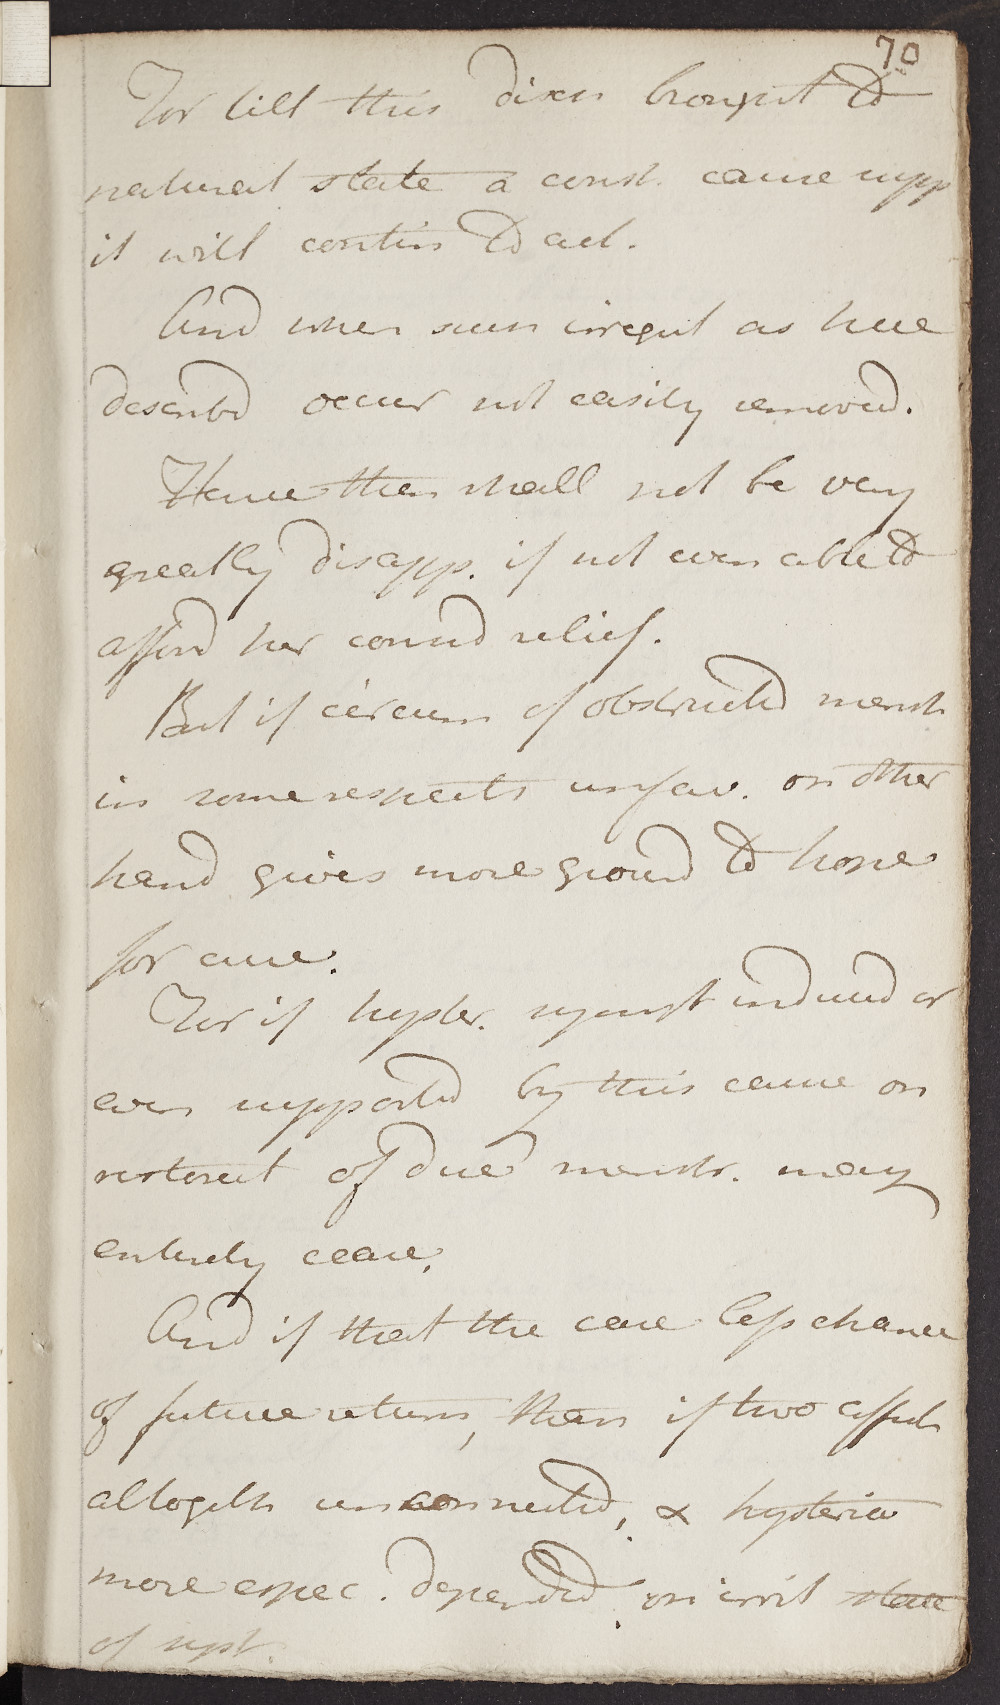 70
For till this disch brought to
natural state a const. cause supp
it will contin to act.
And when such irregul as here
describd occur not easily removed.
Hence then shall not be very
greatly disapp. if not even able to
afford her consid relief.
But if circum of obstructed menstr
in some respects unfav. on other
hand gives more ground to hope
for cure.
For if hyster. sympt induced or
even supported by this cause on
restorat of due menstr. may
entirely cease.
And if that the case less chance
of future return, than if two affect
altogeth unconnected, & hysteria
more espec. depended on irrit state
of syst.